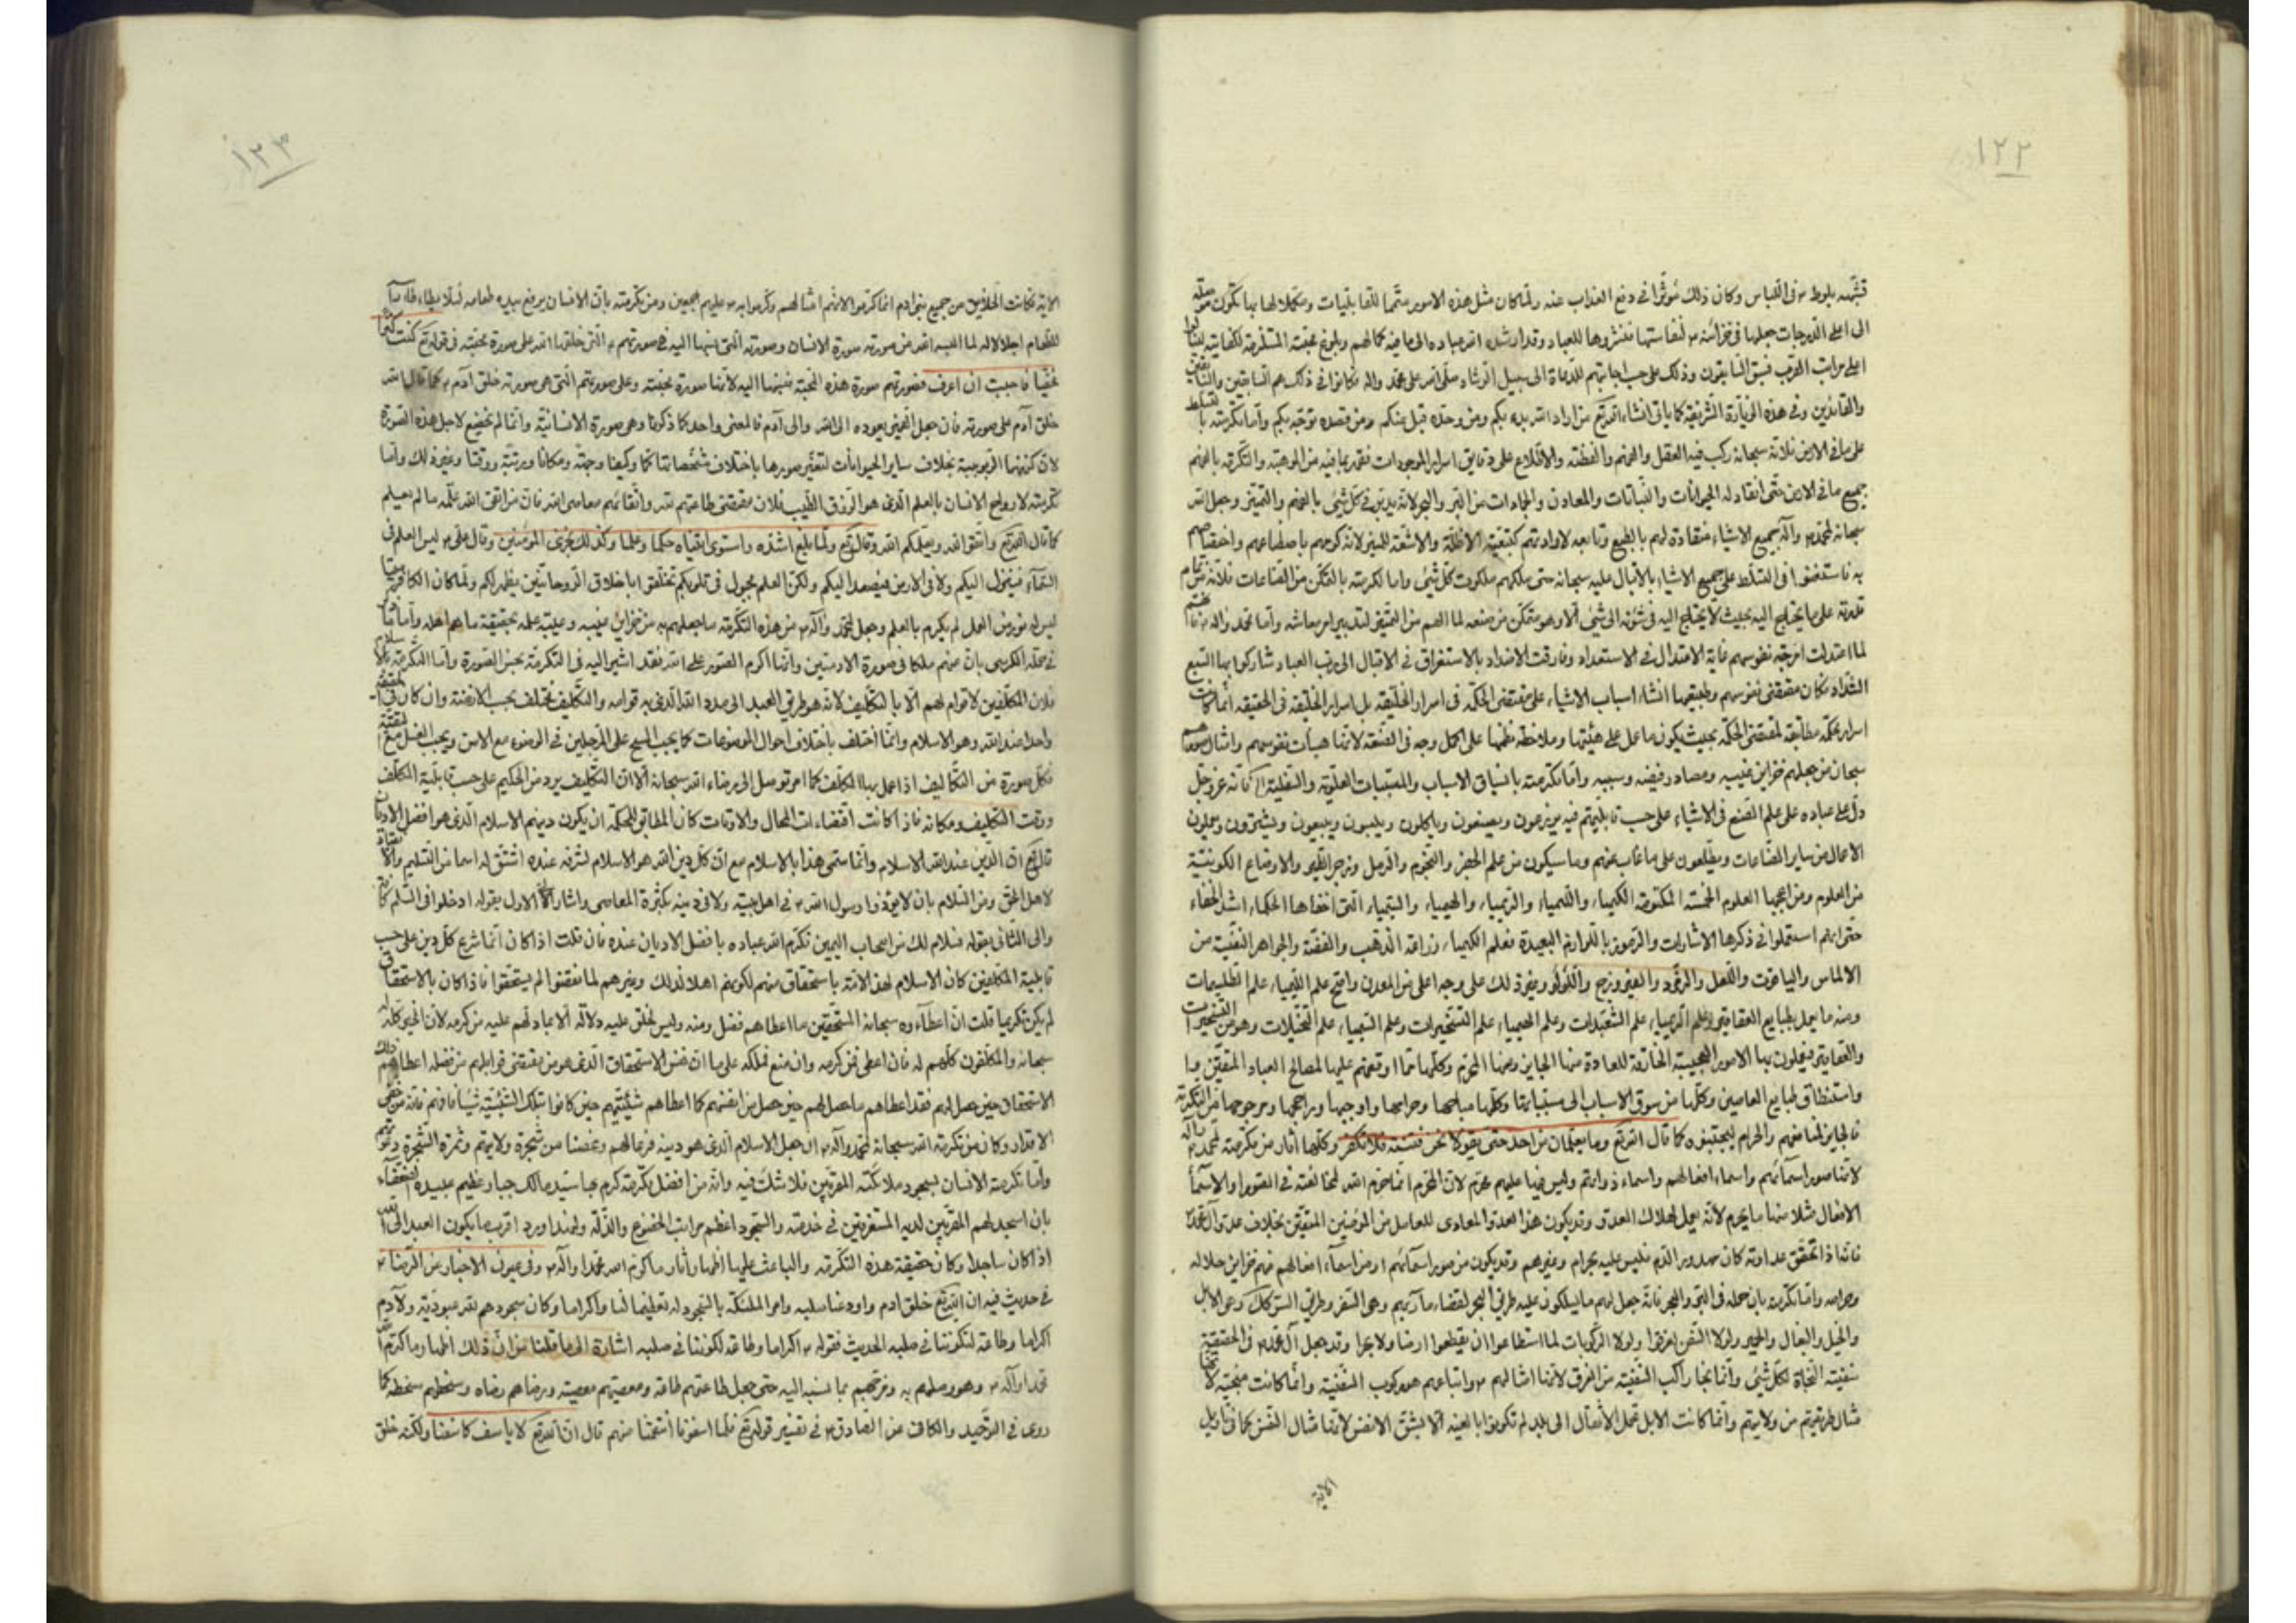 ١٢٢
في اللباس وكان ذلك مؤثرا في دفع العذاب عنه ولما كان مثل هذه الامور متمما للقابليات ومكملا لها بها تكون
الى اعلى الدرجات جعلها في خزائنه لنفاستها وقد ارشد الله عباده الى ما فيه كمالهم وبلوغ محبته
اعلى مراتب القرب فسبق السابقون وذلك على حسب اجابتهم للدعاة الى سبيل الرشاد صلى الله على محمد واله فكانوا في ذلك هم السابقين
والقائدين وفي هذه الزيارة الشريفة كما ياتي انشاء الله تع من اراد الله بدء بكم ومن وحده قبل عنكم ومن قصده توجه بكم واما تكرمته
على ما في الارض فلانه سبحانه ركب فيه العقل والفهم والفطنة والاطلاع على دقايق اسرار الموجودات
جميع ما في الارض حتى انقاد له الحيوانات والنباتات والمعادن والجمادات من البر والبحر لانه يدبر في كل شيء بالفهم والتمييز وجعل الله
سبحانه لمحمد واله جميع الاشياء منقادة لهم بالطبع
في التسلط على جميع الاشياء بالاقبال عليه سبحانه حتى ملكهم ملكوت كل شيء واما تكرمته بالتمكن من الصناعات فلانه
على ما يحتاج اليه بحيث لا يحتاج اليه في شئونه الى شيء الا وهو متمكن من صنعه لما الهم من التمييز لتدبير امر معاشه واما محمد واله
لما اعتدلت امزجة نفوسهم غاية الاعتدال في الاستعداد وفارقت الاضداد بالاستغراق في الاقبال الى رب العباد شاركوا بها السبع
الشداد فكان مقتضى نفوسهم وطبيعتها انشاء اسباب الاشياء على مقتضى الحكمة في اسرار الخليقة بل اسرار الخليقة في الحقيقة انما
مطابقة لمقتضى الحكمة بحيث يكون ما عمل على هيئتها وملاحظة نظمها على اكمل وجه في الصنعة لانها هيئات نفوسهم وامثال
سبحان من جعلهم خزاين غيبه ومصادر فيضه وسببه واما تكرمته بانسياق الاسباب والمسببات العلوية والسفلية فانه عز وجل
دل على عباده على علم الصنع في الاشياء على حسب قابليتهم فيه يزرعون ويصنعون وياكلون ويلبسون ويبيعون ويشترون ويعملون
الاعمال من ساير الصناعات ويطلعون على ما غاب عنهم وما سيكون من علم الجفر والنجوم والرمل وزجر الطير والاوضاع الكونية
من العلوم ومن اعجبها العلوم الخمسة المكتومة الكيمياء والليمياء والريمياء والهيمياء والسيمياء التي اخفاها الحكماء اشد الخفاء
حتى انهم استعملوا في ذكرها الاشارات والرموز باللوازم البعيدة فعلم الكيمياء زراعة الذهب والفضة والجواهر النفيسة من
الالماس والياقوت واللعل والزمرد والفيروزج واللؤلؤ وغير ذلك على وجه اعلى من المعدن واصح علم الليمياء علم الطلسمات
ومنه ما يعمل بطبايع العقاقير وعلم الريمياء علم الشعبذات وعلم الهيمياء علم التسخيرات وعلم السيمياء علم التخيلات وهو من
والعقاقير فيعملون بها الامور العجيبة الخارقة للعادة منها الجايز ومنها المحرم وكلها مما اوقفهم عليها لمصالح العباد المتقين
واستنطاق طبايع العاصين وكلها من سوق الاسباب الى مسبباتها وكلها مباحها وحرامها وواجبها وراجحها ومرجوحها من التكرمة
فالجايز لمنافعهم والحرام ليجتنبوه كما قال الله تع وما يعلمان من احد حتى يقولا انما نحن فتنة فلا تكفر وكلها اثار من تكرمته لمحمد واله
لانها صور اسمائهم واسماء افعالهم واسماء ذواتهم وليس فيها عليهم محرم لان المحرم انما حرم الله لمخالفته في الصور والاسماء
الافعال مثلا منها ما يحرم لانه يعمل لهلاك العدو وقد يكون هذا العدو المعادى للعامل من المؤمنين المتقين بخلاف عدو ال محمد
فانه اذا تحقق عداوته كان مهدور الدم فليس عليه بحرام وغيرهم وقد يكون من صور اسمائهم او من اسماء افعالهم فهم خزاين حلاله
وحرامه واما تكرمته بان حمله في البر والبحر فانه جعل لهم ما يسلكون عليه طريق البحر لقضاء مآربهم وهي السفن وطريق البر كذلك وهي الابل
والخيل والبغال والحمير ولولا السفن لغرقوا ولولا المركوبات لما استطاعوا ان يقطعوا ارضا ولا بحرا وقد جعل آل محمد في الحقيقة
سفينة النجاة لكل شيء وانما نجا راكب السفينة من الغرق لانها امثالهم واتباعهم هو ركوب السفينة وانما كانت منجية
مثال طريقتهم من ولايتهم وانما كانت الابل تحمل الاثقال الى بلد لم تكونوا بالغيه الا بشق الانفس لانها مثال النفس كما في تاويل
الاية
١٢٣
الاية فكانت الخلايق من جميع بني ادم انما كرموا لانهم امثالهم وكرموا به عليهم اجمعين ومن تكرمته بان الانسان يرفع بيده طعامه لئلا يطاطئ
للطعام اجلالا له لما البسه الله من صورته صورة الانسان وصورته التي نسبها اليه في صورتهم التي خلقها الله على صورة محبته في قوله تع كنت كنزا
مخفيا فاحببت ان اعرف فصورتهم صورة هذه المحبة فنسبها اليه لانها صورة محبته وعلى صورتهم التي هي صورته خلق آدم كما قال الله
خلق آدم على صورته فان جعل الضمير يعود الى الله والى آدم فالمعنى واحد كما ذكرنا وهي صورة الانسانية وانما لم تخضع لاجل هذه الصورة
لان كنهها الربوبية بخلاف ساير الحيوانات لتغير صورها باختلاف مشخصاتها كما وكيفا وجهة ومكانا ورتبة ووقتا وغير ذلك واما
تكرمته لارواح الانسان بالعلم الذي هو الرزق الطيب فلان مقتضى طاعتهم لله واتقائهم معاصى الله فان من اتقى الله علمه ما لم يعلم
كما قال الله تع واتقوا الله ويعلمكم الله وقال تع ولما بلغ اشده واستوى اتيناه حكما وعلما وكذلك نجزى المؤمنين وقال على ليس العلم في
السماء فينزل اليكم ولا في الارض فيصعد اليكم ولكن العلم مجبول في قلوبكم تخلقوا باخلاق الروحانيين يظهر لكم ولما كان الكافر
ليس له نور من العمل لم يكرم بالعلم وجعل لمحمد وآله من هذه التكرمة ما جعلهم به من خزاين غيبه وعيبة علمه بحقيقة ما هم اهله واما
في محله الكرسى بان منهم ملكا في صورة الادميين وانها اكرم الصور على الله فقد اشير اليه في التكرمة بحسن الصورة واما التكرمة
فلان المكلفين لا قوام لهم الا بالتكليف لانه هو طريق العبد الى مدد الله الذي به قوامه والتكليف يختلف بحسب الازمنة وان كان في
واحدا عند الله وهو الاسلام وانما اختلف باختلاف احوال الموضوعات كما يجب المسح على الرجلين في الوضوء مع الامن ويجب الغسل مع
فكل صورة من التكاليف اذا عمل بها المكلف كما امر توصل الى رضاء الله سبحانه الا ان التكليف يرد من الحكيم على حسب قابلية المكلف
ووقت التكليف ومكانه فاذا كانت اقتضاءات المحال والاوقات كان المطابق للحكمة ان يكون دينهم الاسلام الذي هو افضل الاديان
قال تع ان الدين عند الله الاسلام وانما سمى هذا بالاسلام مع ان كل دين الله هو الاسلام لشرفه عنده اشتق له اسما من التسليم
لاهل الحق ومن السلام بان لا يؤذوا رسول الله في اهل بيته ولا في دينه بكثرة المعاصى واشار الى الاول بقوله ادخلوا في السلم كافة
والى الثاني بقوله فسلام لك من اصحاب اليمين تكرم الله عباده بافضل الاديان عنده فان قلت اذا كان انما شرع كل دين على حسب
قابلية المكلفين كان الاسلام لهذه الامة باستحقاق منهم لكونهم اهلا لذلك وغيرهم لما نقصوا لم يستحقوا فاذا كان بالاستحقاق
لم يكن تكريما قلت ان اعطاءه سبحانه المستحقين ما اعطاهم فضل ومنه وليس لخلق عليه دلالة الا بما دلهم عليه من كرمه لان الخير كله له
سبحانه والمكلفون كلهم له فان اعطى فمن كرمه وان منع فملكه على ما ان نفس الاستحقاق الذي هو من مقتضى قوابلهم من فضله اعطاهم ذلك
الاستحقاق حين حصل لهم فقد اعطاهم ما حصل لهم حين حصل من انفسهم كما اعطاهم شيئيتهم حين كانوا بتلك الشيئية شيئا
الاقتدار وكان من تكرمة الله سبحانه لمحمد واله ان جعل الاسلام الذي هو دينه فرعا لهم وغصنا من شجرة ولايتهم وثمرة الشجرة
واما تكرمة الانسان بسجود ملائكته المقربين فلا شك فيه وانه من افضل تكرمة كرم بها سيد مالك جبار عظيم عبيده الضعفاء
بان اسجد لهم المقربين لديه المستغرقين في خدمته والسجود اعظم مراتب الخضوع والذلة ولهذا ورد اقرب ما يكون العبد الى الله
اذا كان ساجدا وكان حقيقة هذه التكرمة والباعث عليها اظهار اثار ما كرم الله محمدا واله وفي عيون الاخبار عن الرضا
في حديث فيه ان الله تع خلق ادم واودعنا صلبه وامر الملئكة بالسجود له تعظيما لنا واكراما وكان سجودهم لله عبودية ولآدم
اكراما وطاعة لكوننا في صلبه الحديث فقوله اكراما وطاعة لكوننا في صلبه اشارة الى ما قلنا من ان ذلك اظهار ما كرم الله
محمدا وآله وهو وصلهم به وقربهم بما نسبه اليه حتى جعل طاعتهم طاعته ومعصيتهم معصيته ورضاهم رضاه وسخطهم سخطه كما
روى في التوحيد والكافى عن الصادق في تفسير قوله تع فلما اسفونا انتقمنا منهم قال ان الله تع لا ياسف كاسفنا ولكنه خلق